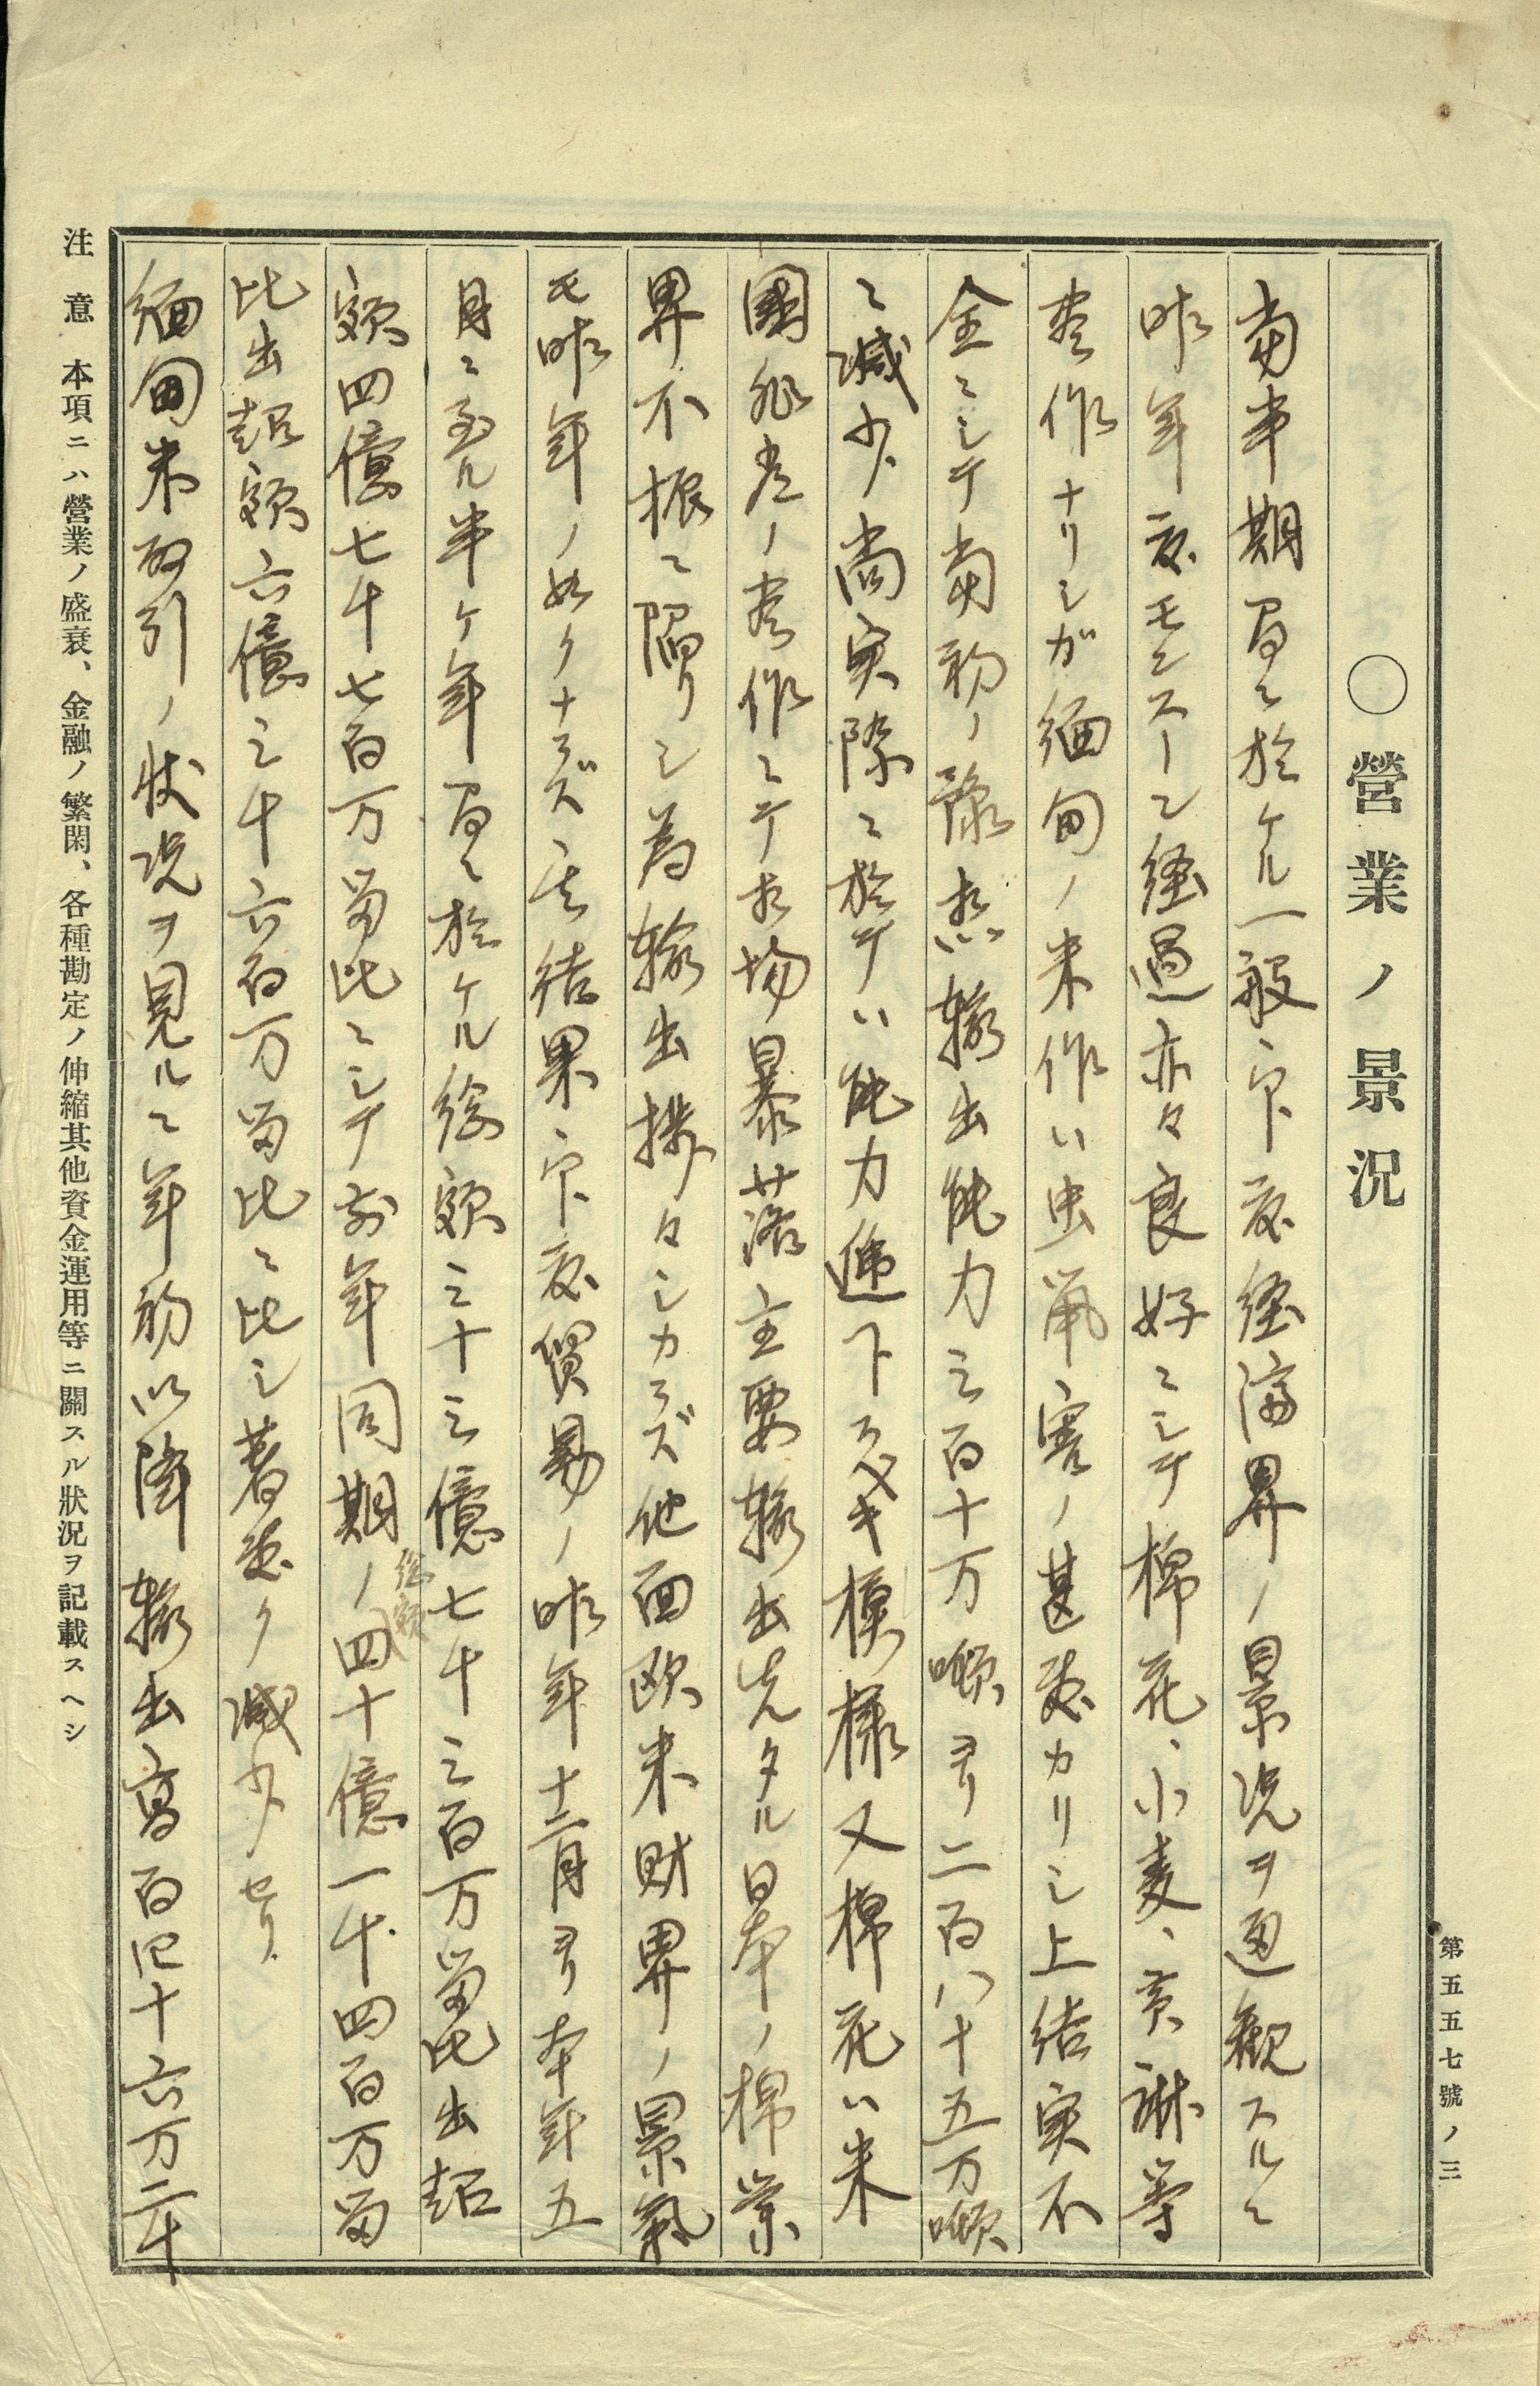 第五五七號ノ三
○營業ノ景況
當半期間ニ於ケル一般印度経済界ノ景況ヲ通観スルニ
昨年度モンスーン経過亦々良好ニシテ棉花、小麦、黄麻等
豊作ナリシガ緬甸ノ米作ハ虫鼠害ノ甚敷カリシ上結実不
全ニシテ当初ノ予想輸出能力三百十万噸ヨリ二百八十五万噸
ニ減少尚実際ニ於テハ能力逓下スベキ模様又棉花ハ米
國非常ノ豊作ニテ相場暴落主要輸出先タル日本ノ棉業
界不振ニ陥リシ為輸出捗々シカラズ他面欧米財界ノ景氣
モ昨年ノ如クナラズ其結果印度貿易ノ昨年十二月ヨリ本年五
月ニ至ル半ケ年間ニ於ケル総額三十三億七千三百万留比出超
額四億七千七百万留比ニシテ前年同期ノ総額四十億一千四百万留
比出超額六億三千六百万留比ニ比シ著敷ク減少セリ
緬甸米取引ノ状況ヲ見ルニ年初以降輸出高百四十六万二千
注意 本項ニハ營業ノ盛衰、金融ノ繁閑、各種勘定ノ伸縮其他資金運用等ニ關スル狀況ヲ記載スヘシ